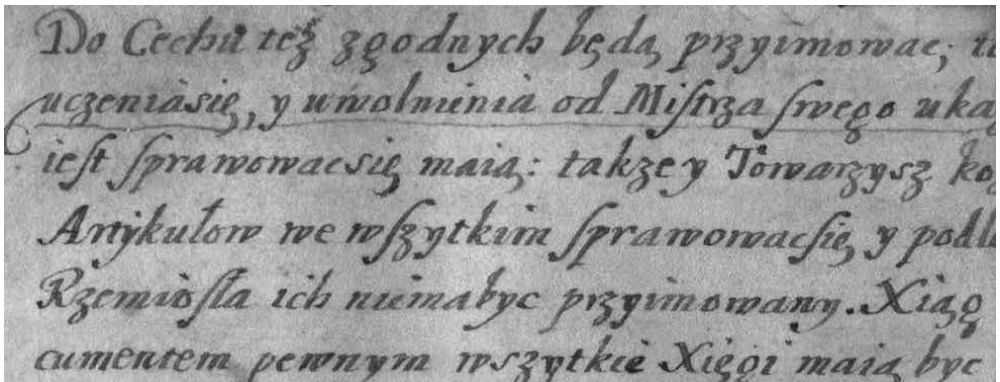 Do Cechu też zgodnych będą przyimowac,
uczeniasię, y uwolnienia od Miſtrza ſwego
ieſt ſprawowacsię maią: takze y Towarzysz
Artykułow we wſzytkim ſprawowacſię, y
Rzemioſła ich niemabyc przyimowany. Xiąg
cumentem pewnym wszytkie Xięgi maią byc